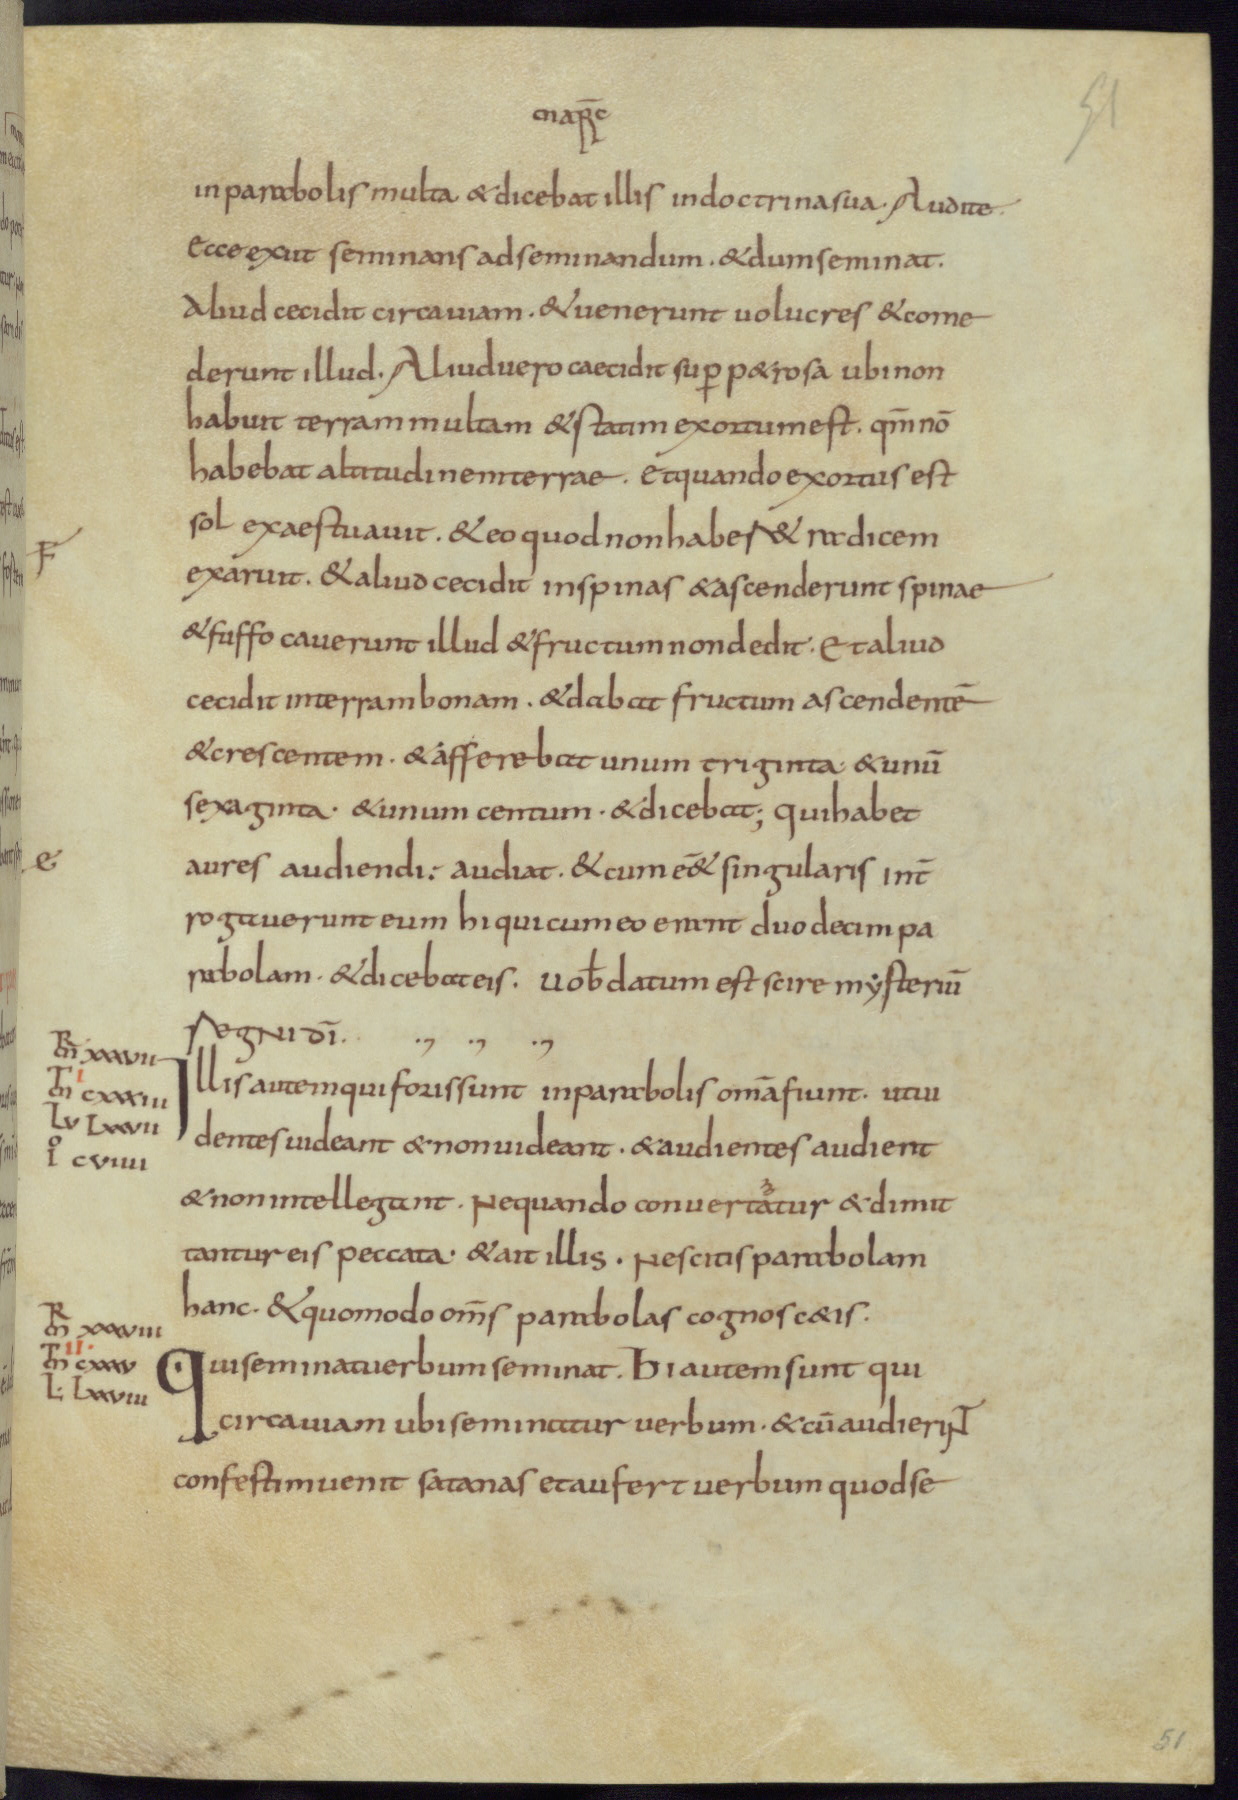 MARC̄
51
in parabolis multa & dicebat illis in doctrina sua. Audite.
Ecce exiit seminans ad seminandum. & dum seminat.
Aliud cecidit circa uiam. & uenerunt uolucres & come
derunt illud. Aliud uero caecidit sup̄ p&rosa ubi non
habuit terram multam & statim exortum est. qm̄ nō
habebat altitudinem terrae. Et quando exortus est
sol exaestuauit. & eo quod non haber& radicem
F
exaruit. & aliud cecidit in spinas & ascenderunt spinae
& suffocauerunt illud & fructum non dedit. Et aliud
cecidit in terram bonam. & dabat fructum ascendentē
& crescentem. & afferebat unum triginta & unū
sexaginta. & unum centum. & dicebat; qui habet
e
aures audiendi: audiat. & cum ēē& singularis int̄
rogauerunt eum hi qui cum eo erant duodecim pa
rabolam. & dicebat eis. Uob̄ datum est scire mysteriū
regni dī.
R
m̄ xxxvii
Illis autem qui foris sunt in parabolis om̄a fiunt. ut ui
T i
m̄ cxxxiii
Lv Lxxvii
dentes uideant & non uideant. & audientes audient
i° cviiii
& non intellegant. Ne quando conuertatur & dimit
tantur eis peccata. & ait illis. Nescitis parabolam
hanc. & quomodo om̄s parabolas cognosc&is.
R
m̄ xxxviii
T ii.
m̄ cxxxv
Qui seminat uerbum seminat. Hi autem sunt qui
L: Lxxviii
circa uiam ubi seminatur uerbum. & cū audierint
confestim uenit satanas et aufert uerbum quod se
51